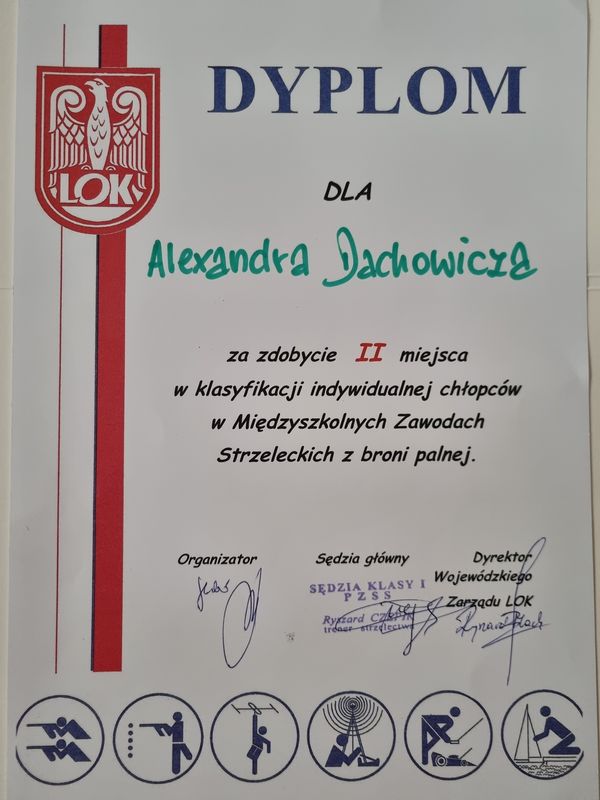 DYPLOM
LOK
DLA
Alexandra Dachowicza
za zdobycie II miejsca
w klasyfikacji indywidualnej chłopców
w Międzyszkolnych Zawodach
Strzeleckich z broni palnej.
Organizator
Sędzia główny
SĘDZIA KLASY I
PZSS
Ryszard
trener strzelectwa
Dyrektor
Wojewódzkiego
Zarządu LOK